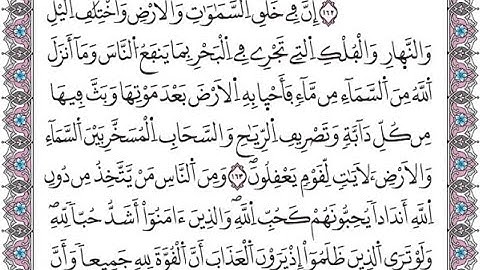 ١٦٢ إِنَّ فِے خَلْقِ اِ۬لسَّمَٰوَٰتِ وَالَارْضِ وَاخْتِلَٰفِ اِ۬ليْلِ
وَالنَّهارِ وَالْفُلْكِ اِ۬لتِے تَجْرِے فِے اِ۬لْبَحْرِ بِمَا يَنفَعُ اُ۬لنَّاسَ وَمَآ أَنزَلَ
اَ۬للَّهُ مِنَ اَ۬لسَّمَآءِ مِن مَّآءٖ فَأَحْيا بِهِ اِ۬لَارْضَ بَعْدَ مَوْتِهَا وَبَثَّ فِيهَا
مِن كُلِّ دَآبَّةٖ وَتَصْرِيفِ اِ۬لرِّيَٰحِ وَالسَّحَابِ اِ۬لْمُسَخَّرِ بَيْنَ اَ۬لسَّمَآءِ
وَالَارْضِ لَأٓيَٰتٖ لِّقَوْمٖ يَعْقِلُونَۖ ١٦٣ وَمِنَ اَ۬لنَّاسِ مَنْ يَّتَّخِذُ مِن دُونِ
اِ۬للَّهِ أَندَاداٗ يُحِبُّونَهُمْ كَحُبِّ اِ۬للَّهِۖ وَالذِينَ ءَامَنُوٓاْ أَشَدُّ حُبّاٗ لِّلهِۖ
وَلَوْ تَرَي اَ۬لذِينَ ظَلَمُوٓاْ إِذْ يَرَوْنَ اَ۬لْعَذَابَ أَنَّ اَ۬لْقُوَّةَ لِلهِ جَمِيعاٗ وَأَنَّ